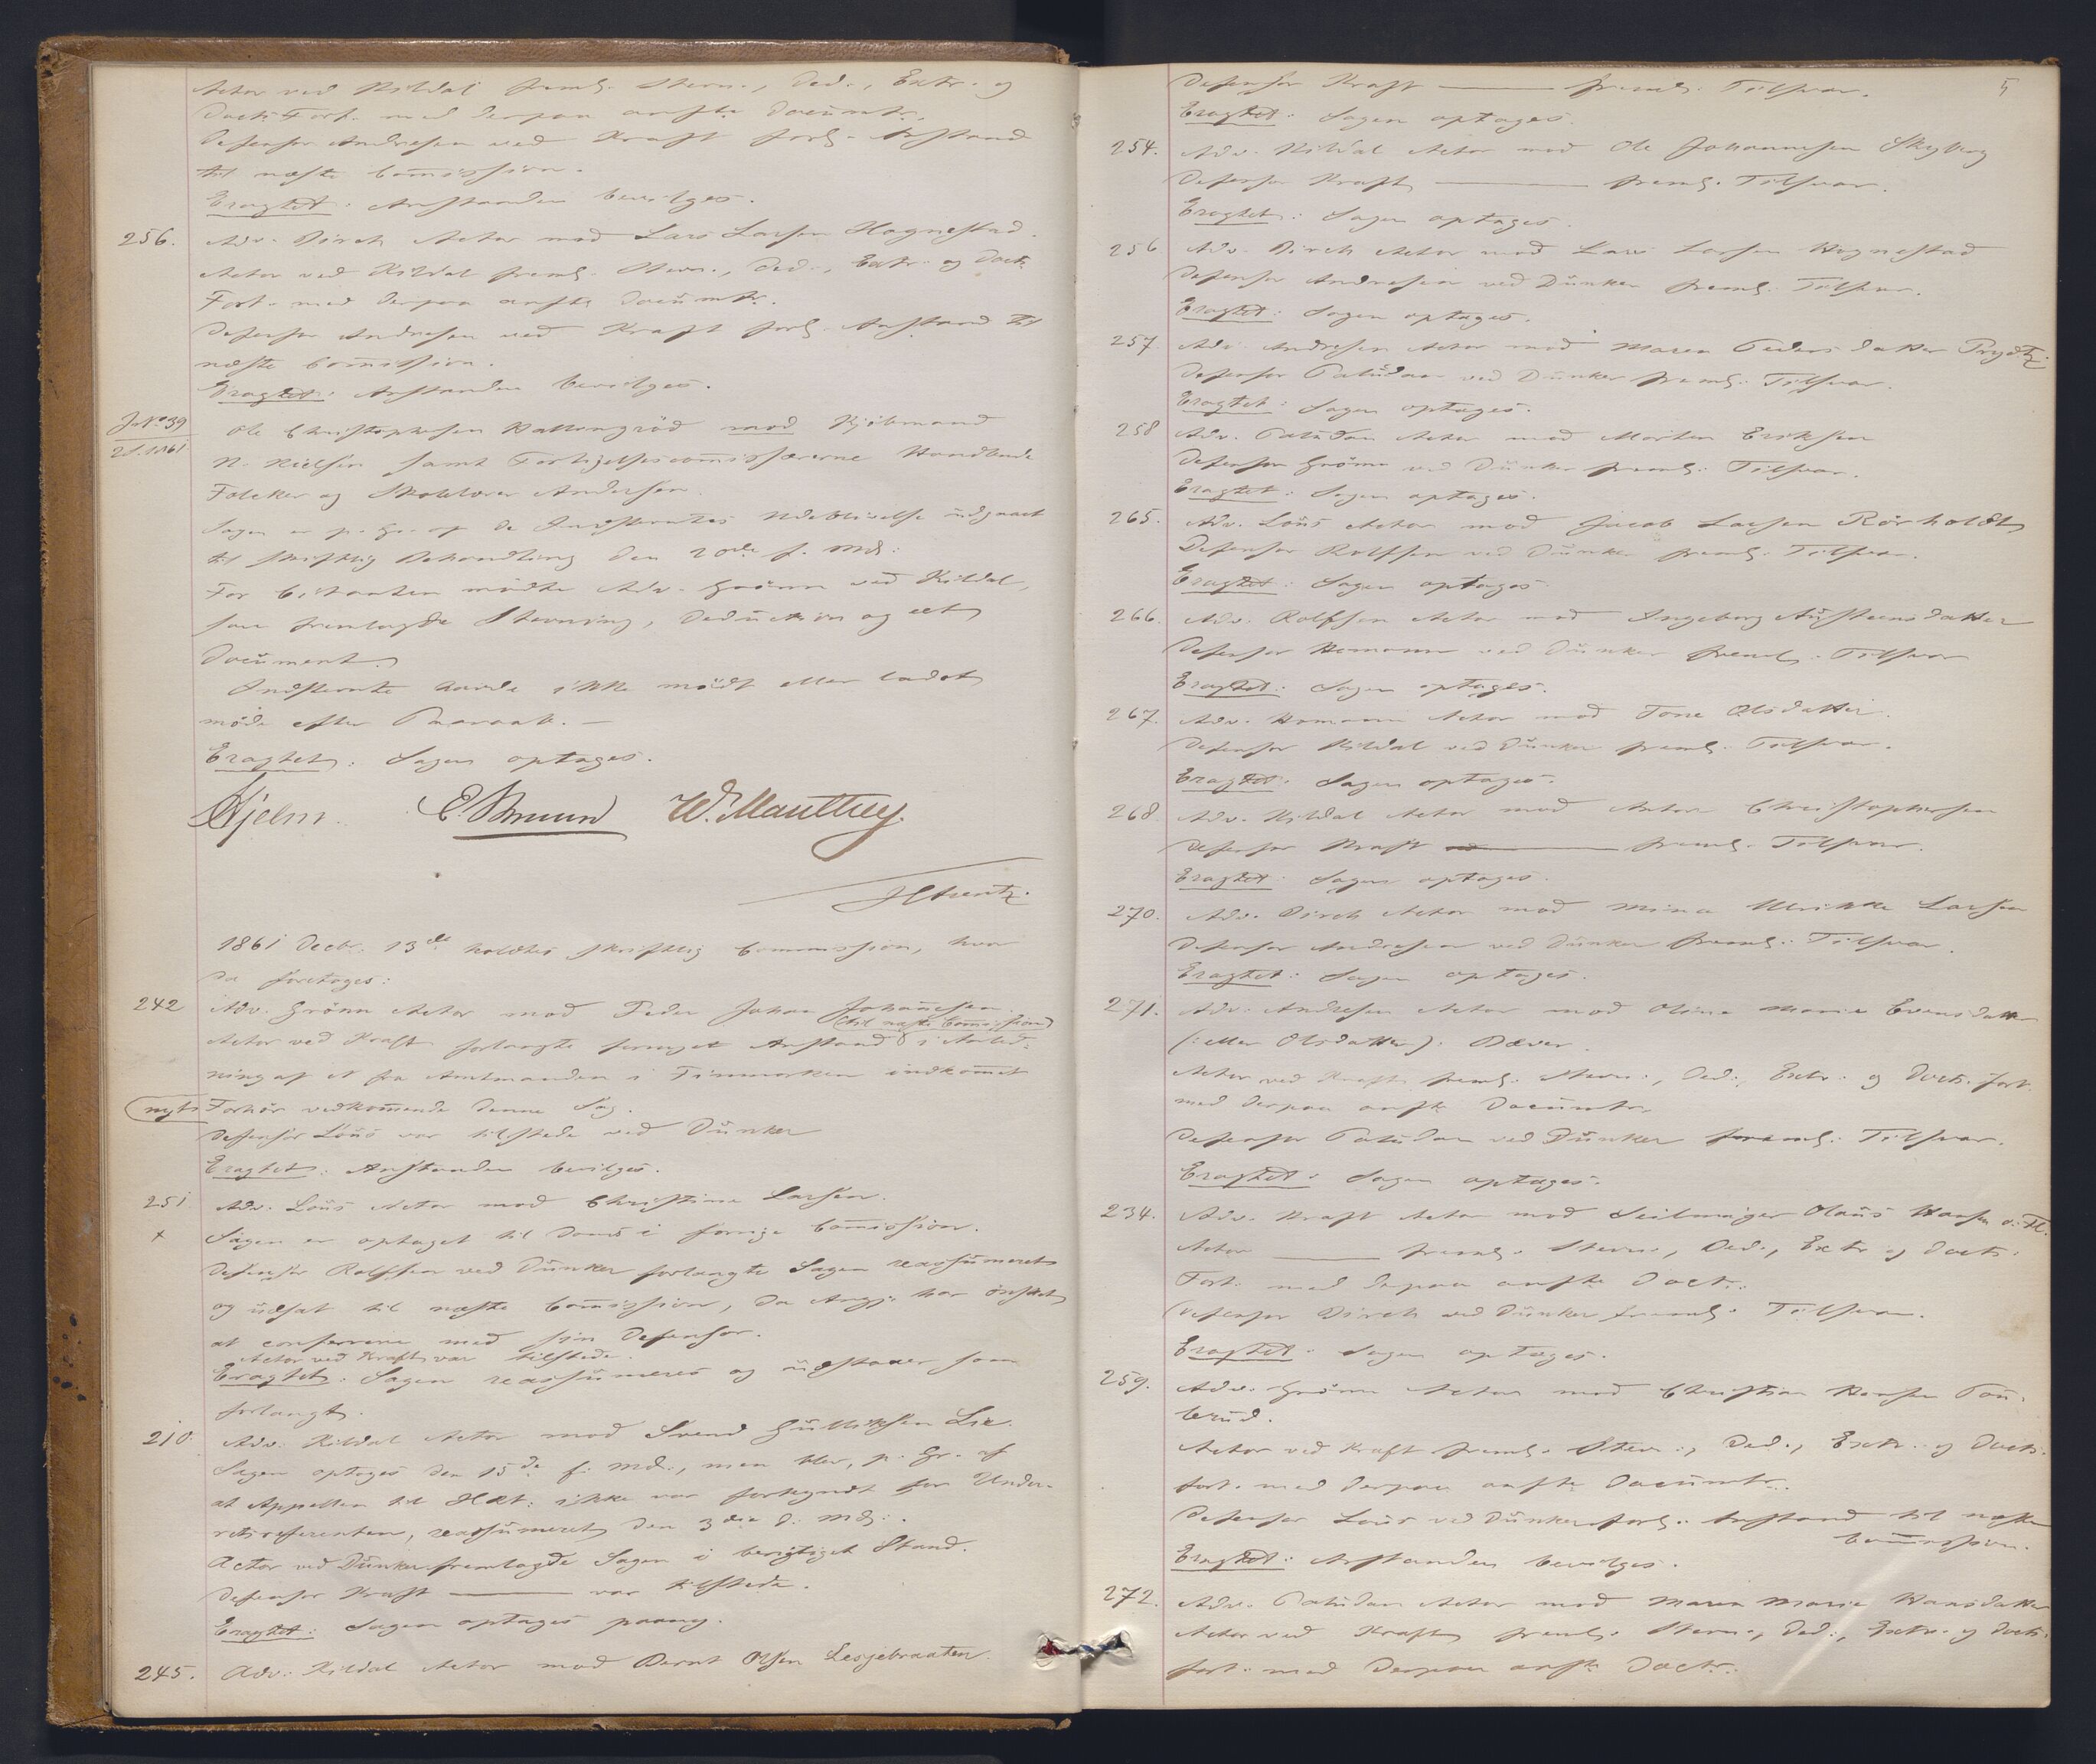 Actor ved Kildal freml. Stevn., Ded., Extr. og
Doct: Fort. med derpaa anfte Documtr.
Defensor Andresen ved Kraft forl. Anstand
til næste Comission.
Eragtet: Anstanden bevilges.
256. Adv. Birch Actor mod Lars Larsen Hognestad.
Actor ved Kildal freml. Stevn., Ded., Extr. og Doct:
Fort. med derpaa anfte Documtr.
Defensor Andresen ved Kraft forl. Anstand til
næste Comission.
Eragtet: Anstanden bevilges.
J. No 39 Ole Christophersen mod Kjöbmand
2 S. 1861 N. Nielsen samt Forligelsescomissærerne
Folcker og Andersen.
Sagen er p. Gr. af de Indstevntes Udeblivelse udgaaet
til skriftlig Behandling den 20de f. Md:
For Citanten mödte Adv. Grönn ved Kildal,
som fremlagde Stevning, Deduction og eet
Document.
Indstevnte havde ikke mödt eller ladet
möde efter Paaraab. —
Eragtet: Sagen optages.
Hjelm. E. Bruun W. Manthey.
1861 Decbr. 13de holdtes skriftlig Commission, hvor
da foretoges:
242 Adv. Grönn Actor mod Peder Johan Johannesen.
(til næste Comission)
Actor ved Kraft forlangte fornyet Anstand i Anled-
ning af et fra Amtmanden i Finmarken indkomet
nyt Forhör vedkomende denne Sag.
Defensor Löus var tilstede ved Dunker
Eragtet: Anstanden bevilges.
251 Adv. Löus Actor mod Christine Larsen.
x Sagen er optaget til Doms i forrige Comission.
Defensor Rolfsen ved Dunker forlangte Sagen reassumeret
og udsat til næste Comission, da Angj. har önsket
at conferere med sin Defensor.
Actor ved Kraft var tilstede.
Eragtet: Sagen reassumeres og udstaaer som
forlangt.
210. Adv. Kildal Actor mod Svend Gulliksen Lie.
Sagen optoges den 15de f. Md:, men blev, p. Gr. af
at Appellen til Hret: ikke var forkyndt for Under-
retsreferenten, reassumeret den 3die d. Md:.
Actor ved Dunker fremlagde Sagen i berigtiget Stand.
Defensor Kraft ——— var tilstede.
Eragtet: Sagen optages paany.
245. Adv: Kildal Actor mod Bernt Olsen Lesjebraaten.
5
Defensor Kraft ——— freml. Tilsvar.
Eragtet: Sagen optages.
254. Adv. Kildal Actor mod Ole Johannesen Skyberg
Defensor Kraft ——— freml. Tilsvar.
Eragtet: Sagen optages.
256 Adv. Birch Actor mod Lars Larsen Hognestad
Defensor Andresen ved Dunker freml. Tilsvar.
Eragtet: Sagen optages.
257. Adv. Andresen Actor mod Maren Pedersdatter Prydtz.
Defensor Paludan ved Dunker freml: Tilsvar.
Eragtet: Sagen optages.
258 Adv. Paludan Actor mod Morten Eriksen
Defensor Grönn ved Dunker freml: Tilsvar.
Eragtet: Sagen optages.
265. Adv. Löus Actor mod Jacob Larsen Rörholdt
Defensor Rolfsen ved Dunker freml: Tilsvar.
Eragtet: Sagen optages
266. Adv. Rolfsen Actor mod Ingeborg Austeensdatter
Defensor Homann ved Dunker freml. Tilsvar
Eragtet: Sagen optages.
267. Adv. Homann Actor mod Tone Olsdatter.
Defensor Kildal ved Dunker freml. Tilsvar.
Eragtet: Sagen optages.
268. Adv. Kildal Actor mod Anton Christophersen
Defensor Kraft ——— freml. Tilsvar.
Eragtet: Sagen optages.
270. Adv. Birch Actor mod Mina Ulrikke Larsen
Defensor Andresen ved Dunker freml: Tilsvar.
Eragtet: Sagen optages.
271. Adv. Andresen Actor mod Oline Marie Evensdatter
(: eller Olsdatter): Bæver.
Actor ved Kraft freml. Stevn:, Ded:, Extr: og Doct: fort.
med derpaa anfte Documtr.
Defensor Paludan ved Dunker freml: Tilsvar.
Eragtet: Sagen optages.
234. Adv. Kraft Actor mod Seilmager Olaus Hansen o: Fl.
Actor ——— freml. Stevn:, Ded:, Extr og Doct:
Fort. med derpaa anfte Doct:.
Defensor Birch ved Dunker freml. Tilsvar.
Eragtet: Sagen optages.
259. Adv. Grönn Actor mod Christian Hansen
Actor ved Kraft freml. Stevn:, Ded:, Extr: og Doct:
fort. med derpaa anfte Documtr.
Defensor Löus ved Dunker forl: Anstand til næste
Commission.
Eragtet: Anstanden bevilges.
272. Adv. Paludan Actor mod Maren Marie Hansdatter
Actor ved Kraft freml. Stevn:, Ded:, Extr: og Doct:
fort. med derpaa anfte Doctr.